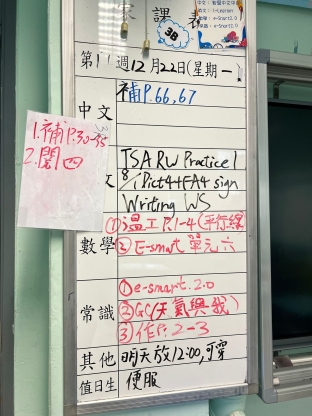 家課表
3B
第11週12月22日(星期一)
中文
補P.66,67
1.補P.30-35
2.閱四
文
TSA RW Practice 1
8/1 Pict4+FA4 sign
Writing WS
數學
①溫工P.1-4(平行線)
②E-smart 單元六
常識
①e-smart.2.0
②GC(天氣與我)
③作P.2-3
其他
明天放12:00,可穿
值日生
便服